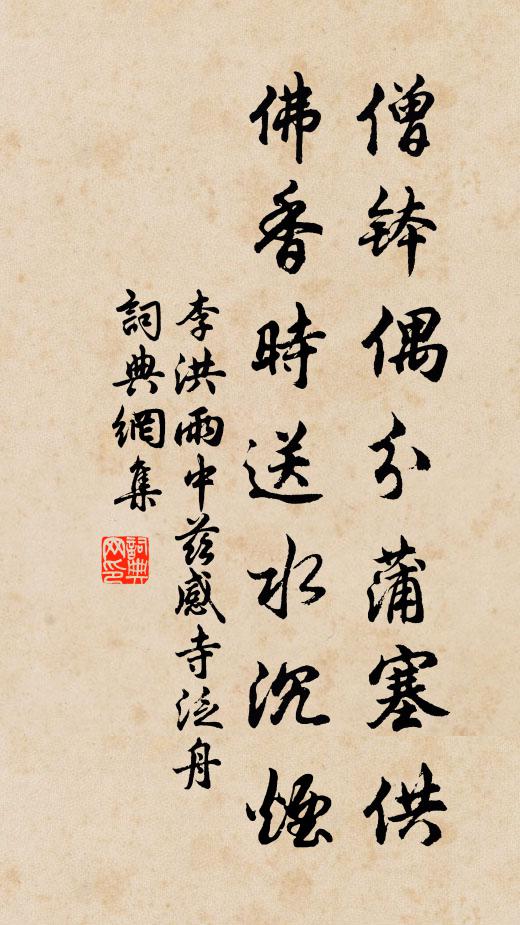 僧鉢偶分蒲塞供
佛香時送水沉煙
李洪雨中慈感寺泛舟
詞典網集
詞典網印